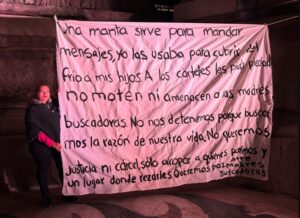 Una manta sirve para mandar
mensajes, yo las usaba para cubrir del
frio a mis hijos. A los cárteles les pido piedad
no maten ni amenacen a las madres
buscadoras. No nos detenemos porque busca-
mos la razón de nuestra vida. No queremos
Justicia ni cárcel, sólo arropar a quienes parimos y
un lugar donde rezarles. Queremos paz
madres
Buscadoras